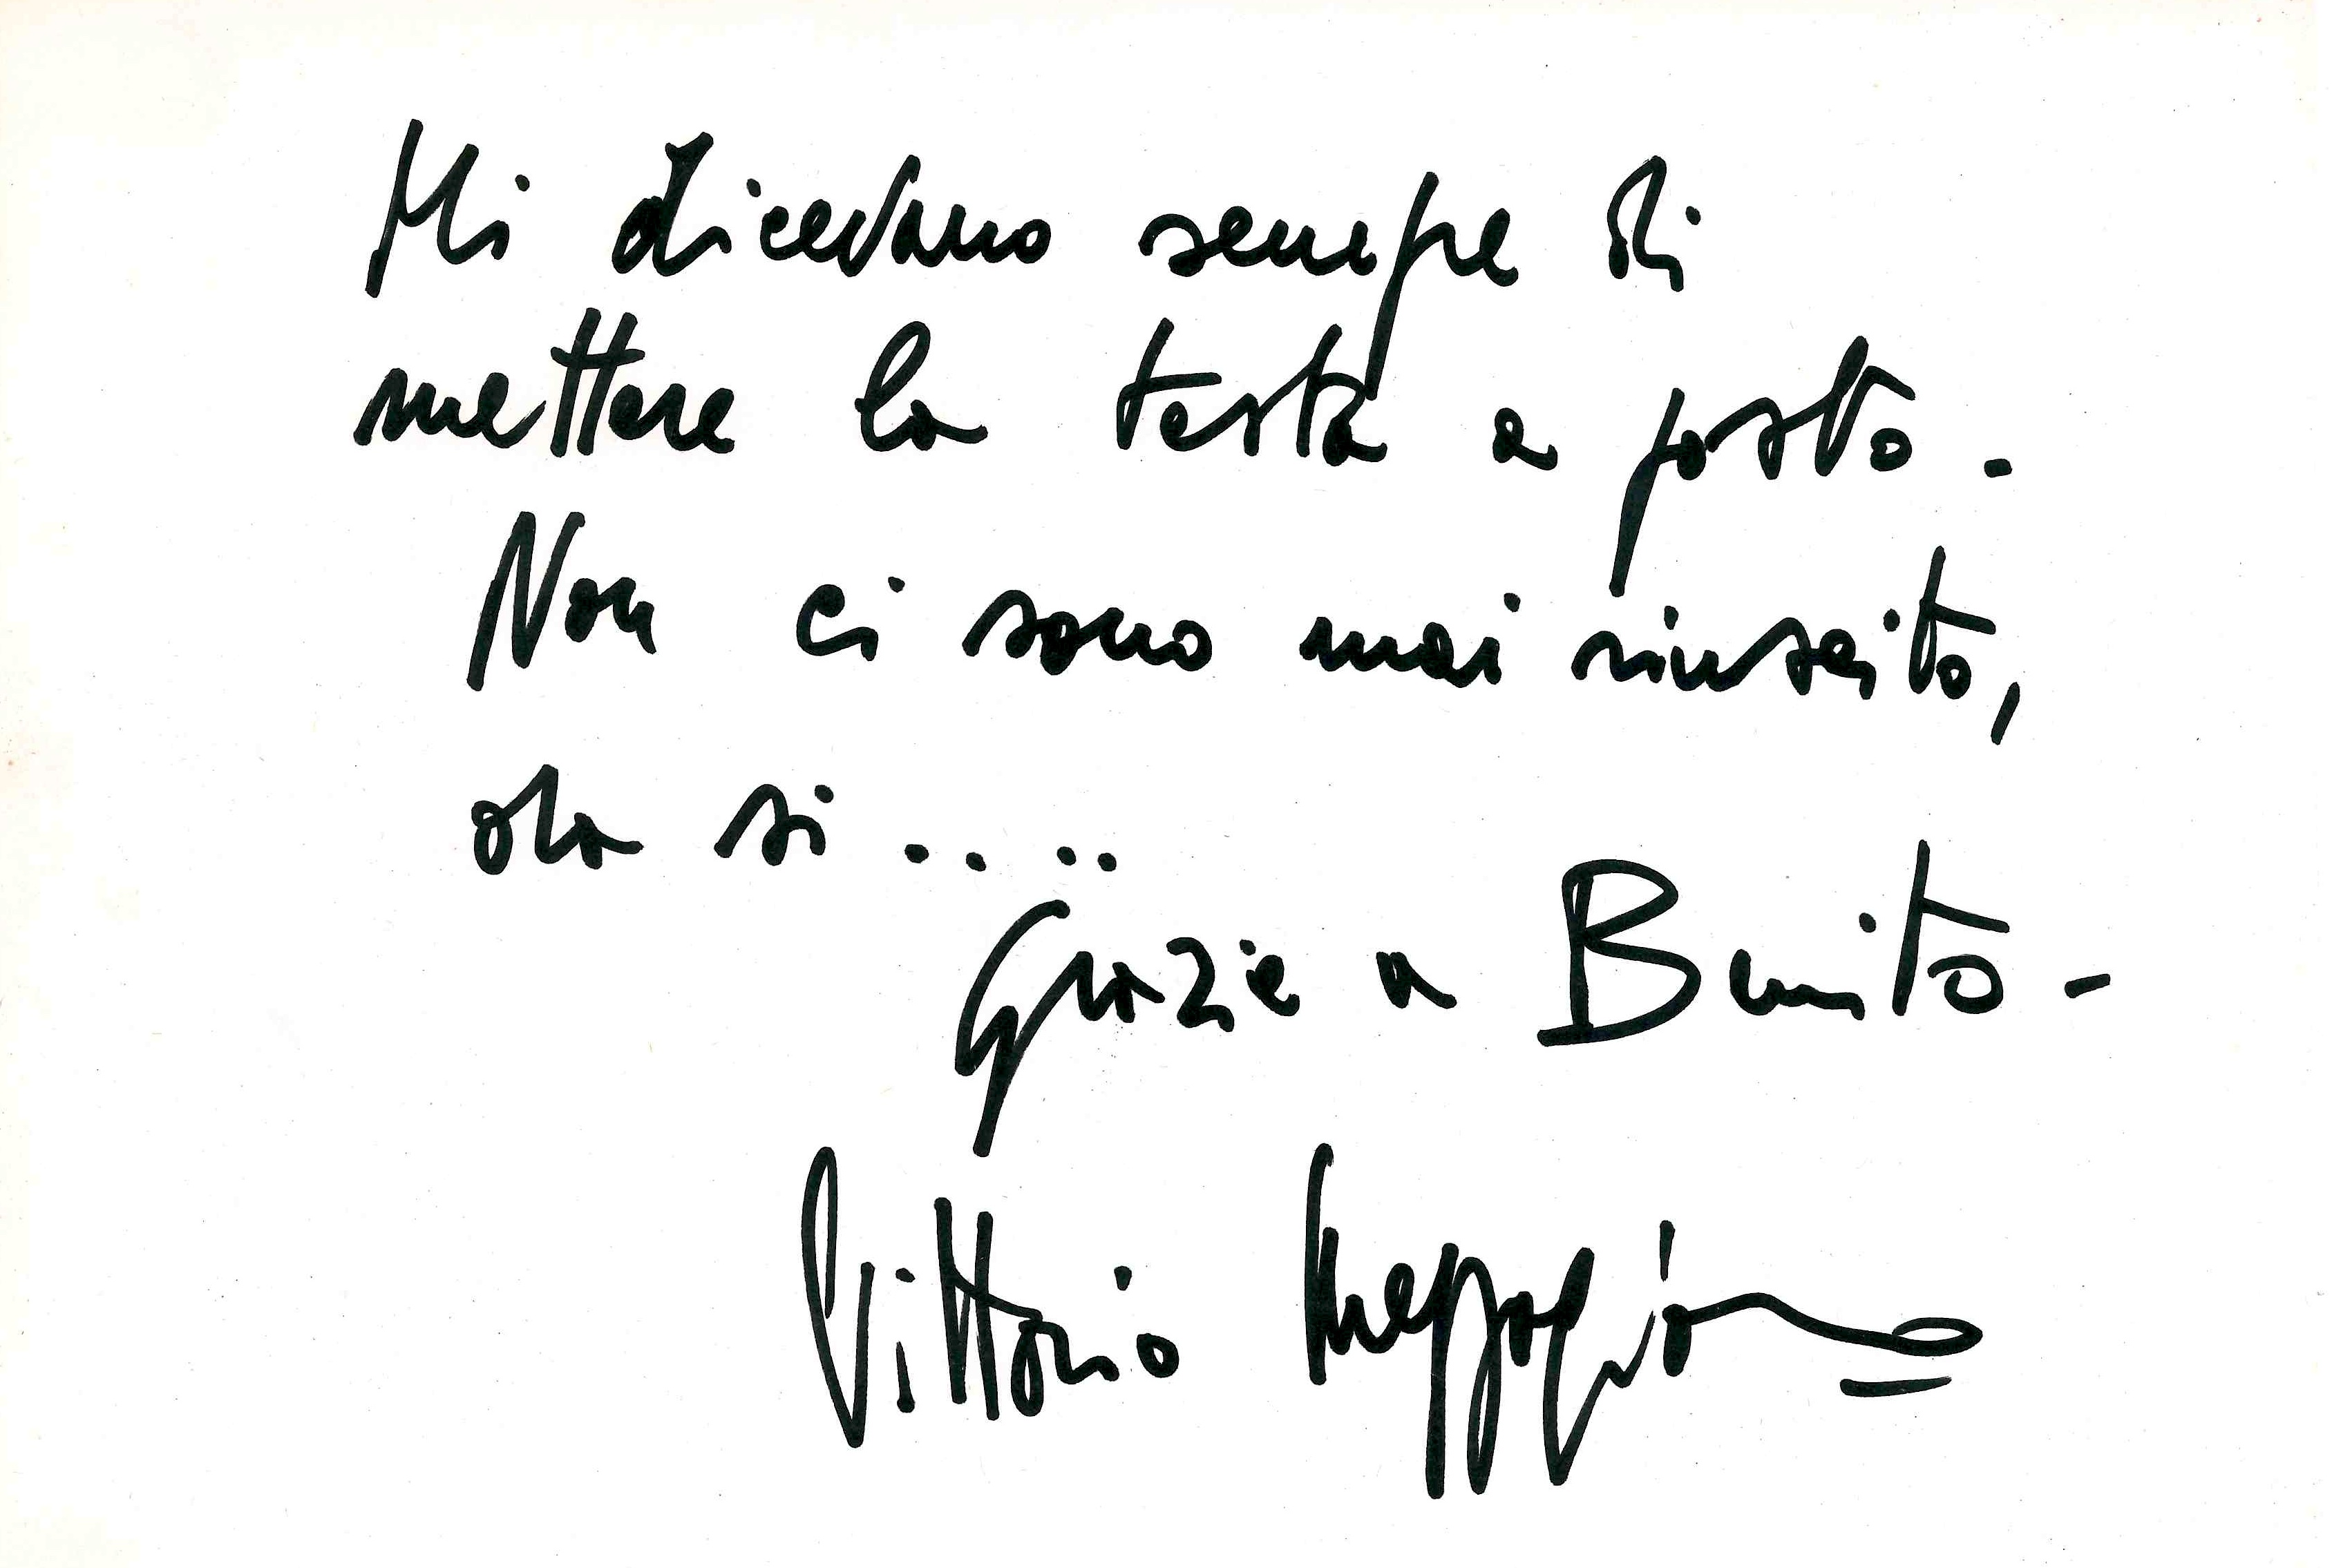 Mi dicevano sempre di
mettere la testa a posto.
Non ci sono mai riuscito,
ora si ....
Grazie a Benito -
Vittorio Mezzogiorno